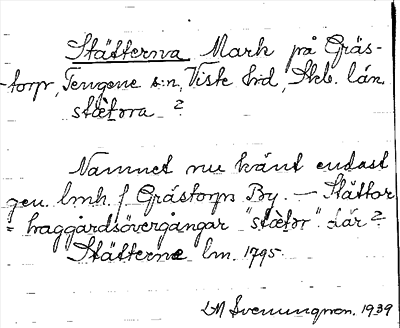 Stätterna Mark på Gräs-
-torp, Tengene s:n, Viste hd, Skb. län.
stæt̀əra ?
Namnet nu känt endast
gen. lmh. f Grästorps By. — Stättor
= haggårdsövergångar "stæ̀tər". där?
Stätterne lm. 1795.
LM Svenungson. 1939